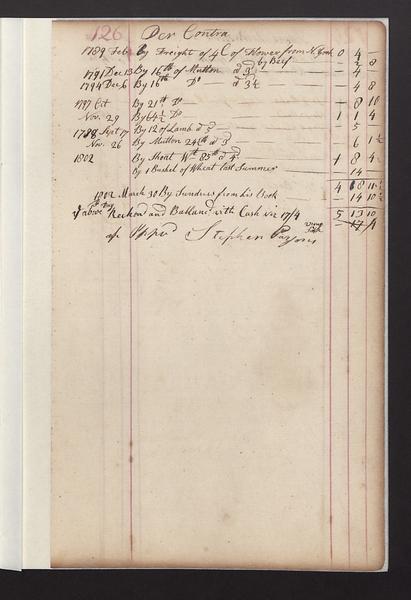 126 Per Contra
1789 Feb By Freight of 4 C of Flower from N. York 0 4 –
by Beef – 2 8
1791 Dec 13 By 16 lb of Mutton d – 4 –
1794 Dec 6 By 16 lb Do d 3¼ – 4 8
1797 By 21 lb Do – 8 10
Nov. 29 By 64½ Do 1 1 4
1798 Sept 17 By 12 of Lamb d 5 – 5
Nov. 26 By Mutton 24 lb d 3 6 1½
1802 By Shoat Wt 85 lb d 4d 1 8 4
By 1 Bushel of Wheat last Summer – 14 –
4 18 11½
1802 March 30 By Sundries from his Book – 14 10½
5 13 10
above Reckon and Ballanc with Cash viz 17/4 – 17 4
Stephen Parsons